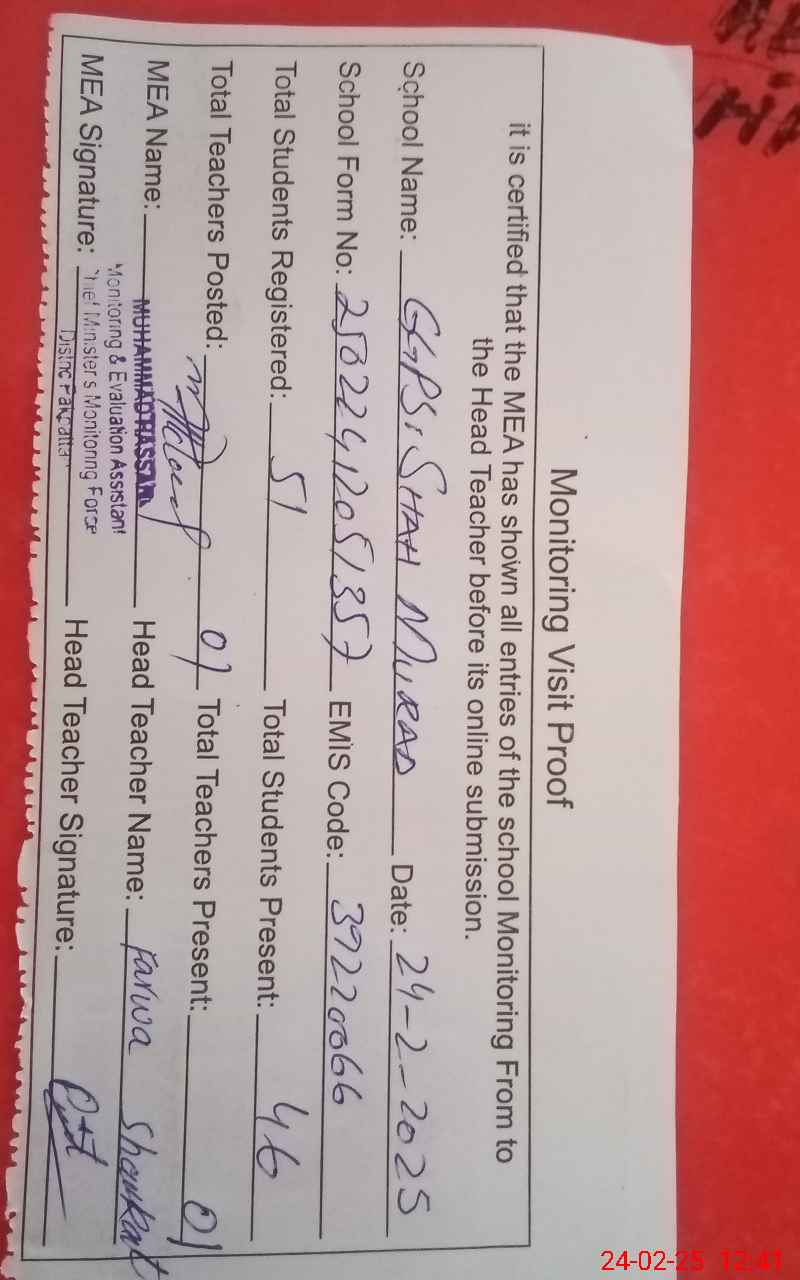 Monitoring Visit Proof
it is certified that the MEA has shown all entries of the school Monitoring From to
the Head Teacher before its online submission.
School Name: GGPS, SHAH MURAD Date: 24-2-2025
School Form No: 25022412051357 EMIS Code: 39220066
Total Students Registered: 51 Total Students Present: 46
Total Teachers Posted: 01 Total Teachers Present: 01
MEA Name: MUHAMMAD HASSAN Head Teacher Name: Farwa Shaukat
Monitoring & Evaluation Assistant
Chief Minister's Monitoring Force
MEA Signature: District Pakpattan Head Teacher Signature:
24-02-25 12:41